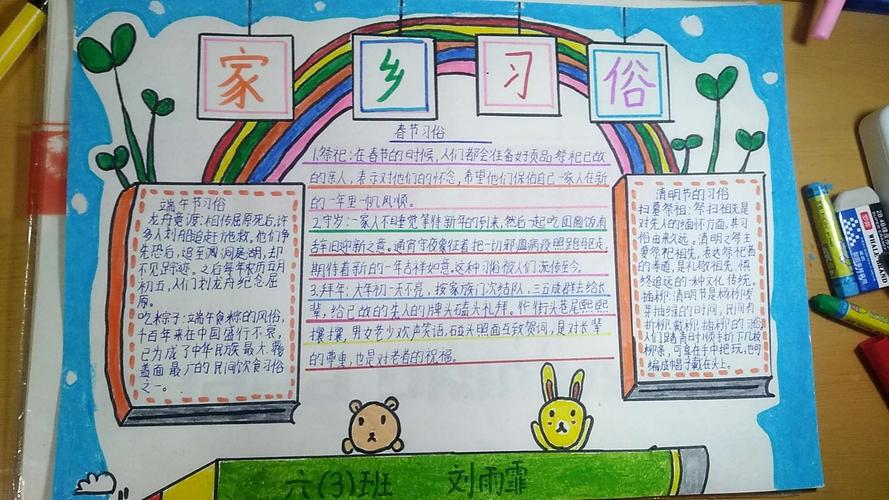 家乡习俗
春节习俗
1.祭祀:在春节的时候,人们都会准备好贡品祭祀已故
的亲人,表示对他们的怀念,希望他们保佑自己一家人在新
的一年里一帆风顺。
2.守岁:一家人不睡觉等待新年的到来,然后一起吃团圆饭有
辞旧迎新之意。通宵守夜象征着把一切邪瘟病疫照跑驱走,
期待着新的一年吉祥如意.这种习俗被人们流传至今。
3.拜年:大年初一天不亮,按家族门次结队,三五成群去给长
辈,给已故的亲人的牌头磕头礼拜。街头巷尾熙熙
攘攘,男女老少欢声笑语,碰头照面互致贺词,是对长辈
的尊重,也是对老者的祝福。
端午节习俗
龙舟竞渡:相传屈原死后,许
多人划船追赶拯救。他们争
先恐后,追至洞庭湖,却
不见踪迹。之后每年农历五月
初五,人们划龙舟纪念屈
原。
吃粽子:端午食粽的风俗,
千百年来在中国盛行不衰,
已为成了中华民族最大覆
盖面最广的民间饮食习俗
之一。
清明节的习俗
扫墓祭祖:祭扫祖先是
对先人的缅怀方面,其习
俗由来久远。清明之祭主
要祭祀祖先,表达祭祀者
的孝道,是礼敬祖先、慎
终追远的一种文化传统。
插柳:清明节是杨柳发
芽抽绿的时间,民间有
折柳、戴柳、插柳的习俗
人们踏青时顺手折下几枝
柳条,可拿在手中把玩,也可
编成帽子戴在头上。
六(3)班 刘雨霏
WHALE BRAND